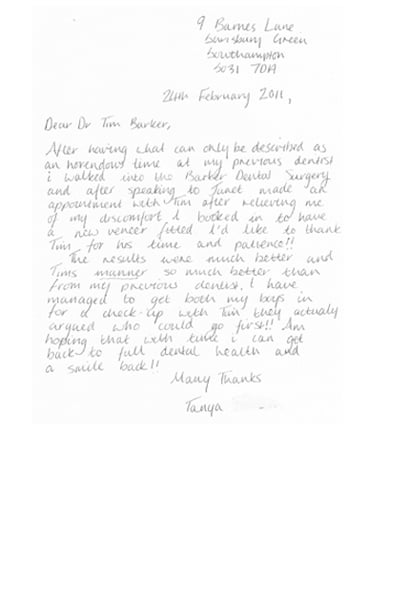 9 Barnes Lane
Sarisbury Green
Southampton
SO31 7DA
24th February 2011,
Dear Dr Tim Barker,
After having what can only be described as
an horendous time at my previous dentist
i walked into the Barker Dental Surgery
and after speaking to Janet made an
appointment with Tim after relieving me
of my discomfort I booked in to have
a new veneer fitted I'd like to thank
Tim for his time and patience!!
The results were much better and
Tims manner so much better than
from my previous dentist. I have
managed to get both my boys in
for a check-up with Tim they actualy
argued who could go first!! Am
hoping that with time i can get
back to full dental health and
a smile back!!
Many Thanks
Tanya